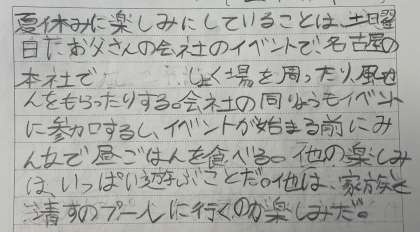 夏休みに楽しみにしていることは、土曜
日にお父さんの会社のイベントで、名古屋の
本社で しょく場を周ったり風せ
んをもらったりする。会社の同りょうもイベント
に参加するし、イベントが始まる前にみ
んなで昼ごはんを食べる。他の楽しみ
は、いっぱい遊ぶことだ。他は、家族と
清すのプールに行くのが楽しみだ。